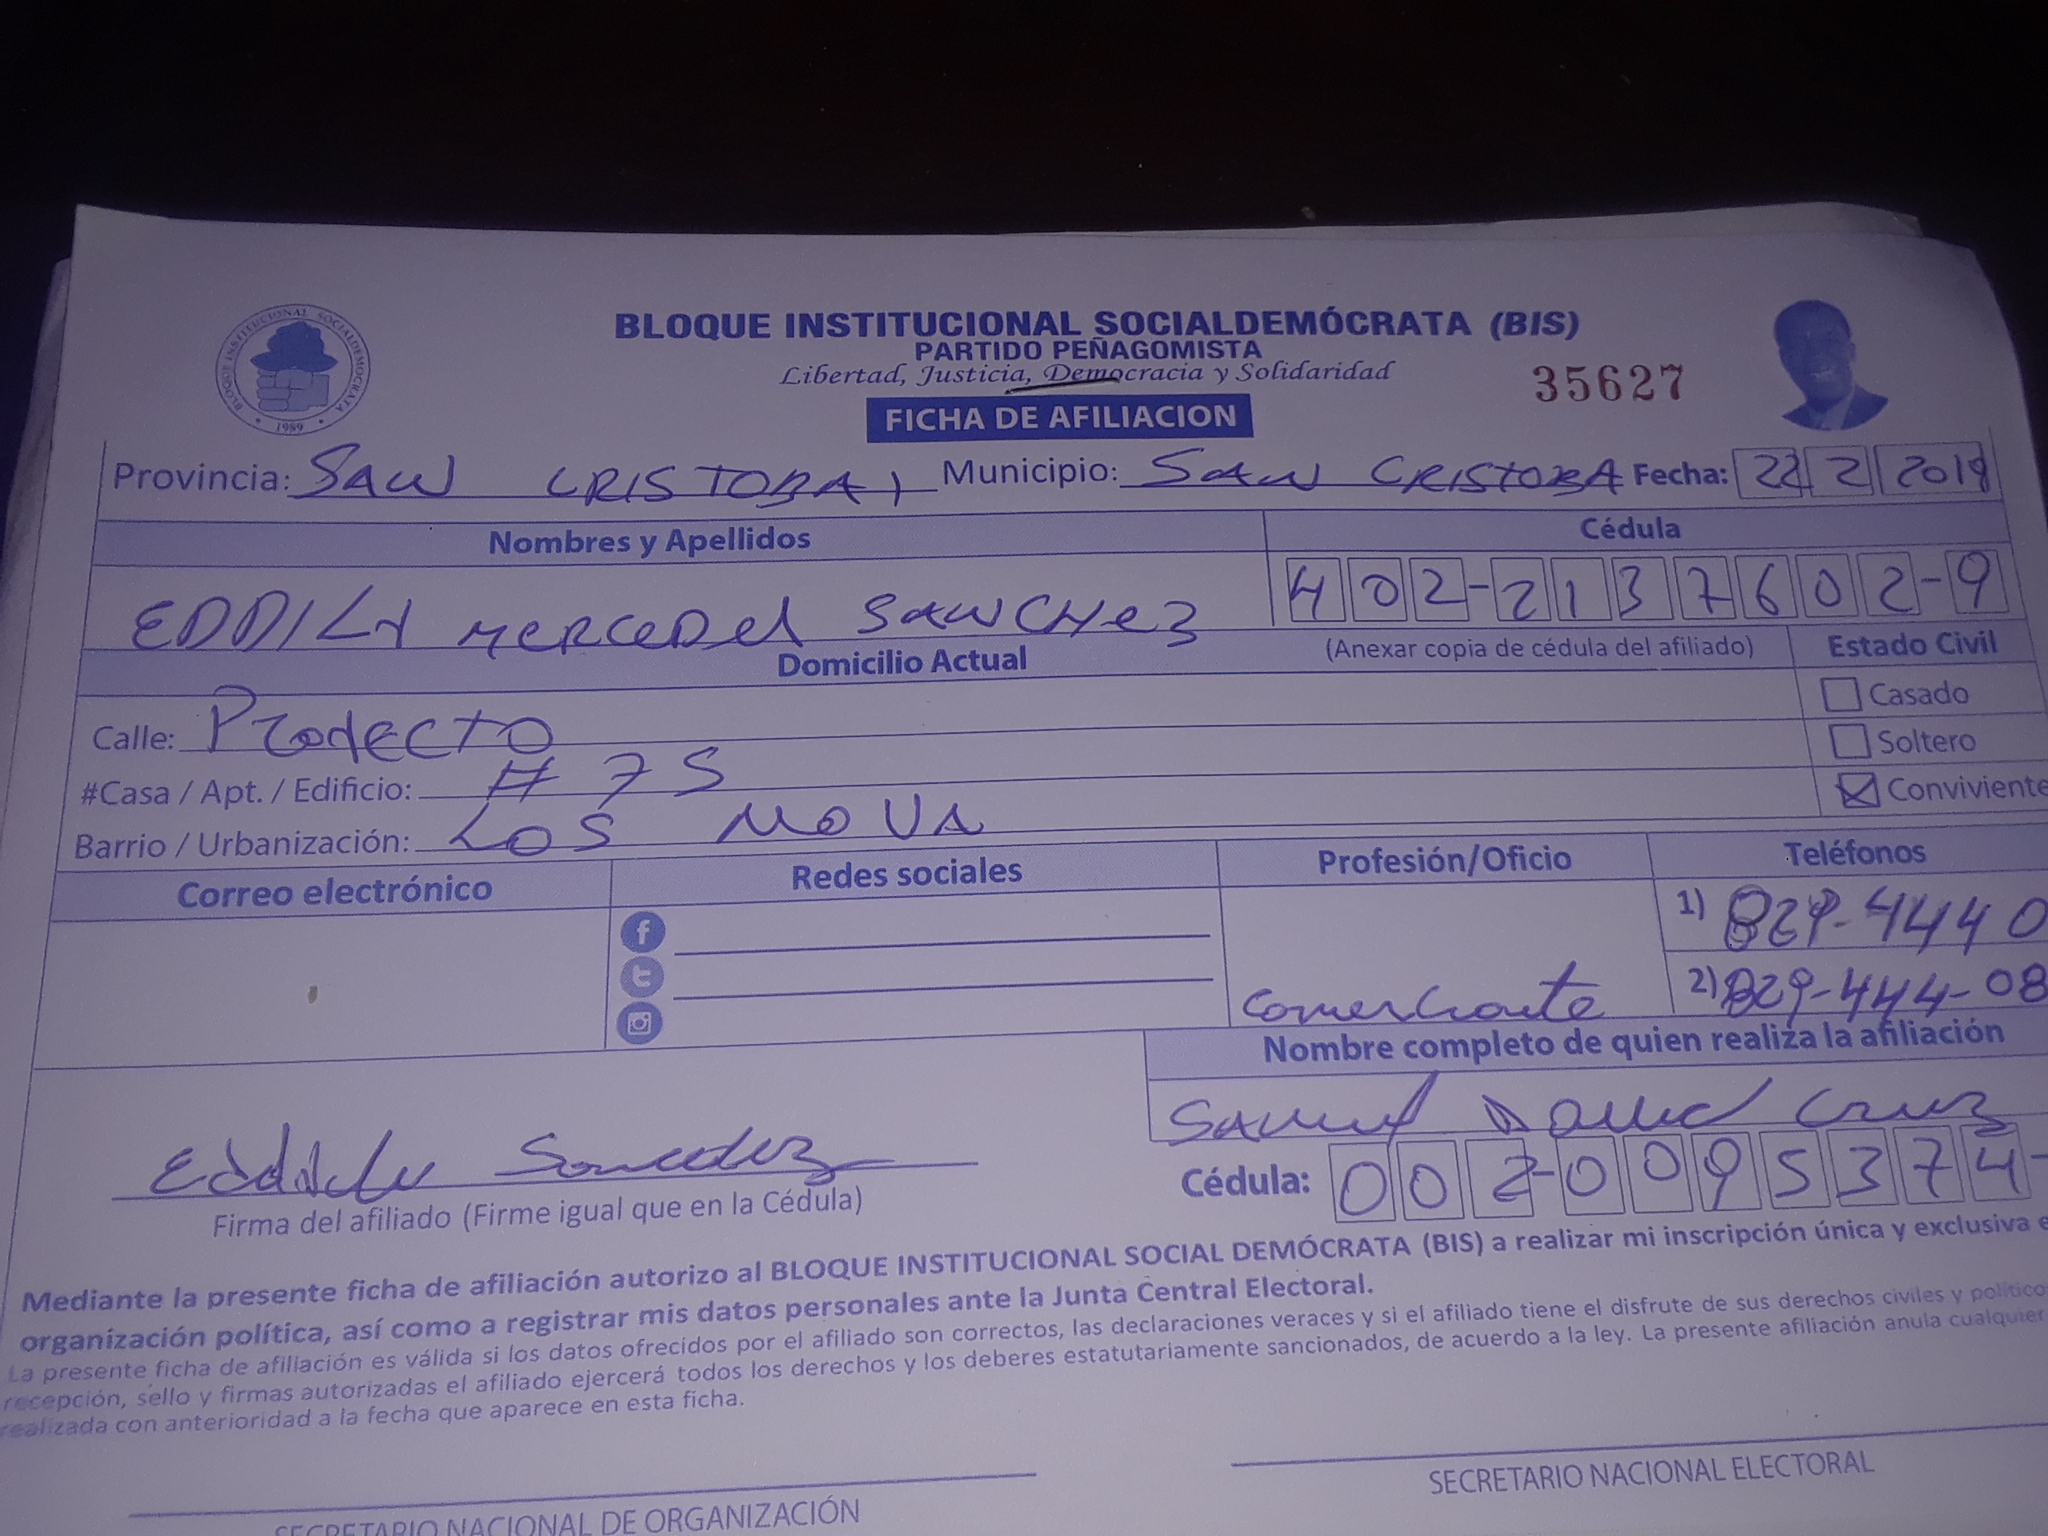 BLOQUE INSTITUCIONAL SOCIALDEMOCRATA
1989
BLOQUE INSTITUCIONAL SOCIALDEMÓCRATA (BIS)
PARTIDO PEÑAGOMISTA
Libertad, Justicia, Democracia y Solidaridad
35627
FICHA DE AFILIACION
Provincia: SAN CRISTOBAL Municipio: SAN CRISTOBA Fecha: 22 2 2019
Nombres y Apellidos Cédula
EDDILY MERCEDES SANCHEZ 402-2137602-9
Domicilio Actual (Anexar copia de cédula del afiliado) Estado Civil
Casado
Calle: Proyecto
Soltero
#Casa / Apt. / Edificio: # 75
Conviviente
Barrio / Urbanización: LOS NOVA
Correo electrónico Redes sociales Profesión/Oficio Teléfonos
1) 829-4440
2) 829-444-08
comerciante
Nombre completo de quien realiza la afiliación
Samuel David Cruz
Eddily Sanchez
Cédula: 002-0095374-
Firma del afiliado (Firme igual que en la Cédula)
Mediante la presente ficha de afiliación autorizo al BLOQUE INSTITUCIONAL SOCIAL DEMÓCRATA (BIS) a realizar mi inscripción única y exclusiva e
organización política, así como a registrar mis datos personales ante la Junta Central Electoral.
La presente ficha de afiliación es válida si los datos ofrecidos por el afiliado son correctos, las declaraciones veraces y si el afiliado tiene el disfrute de sus derechos civiles y político
recepción, sello y firmas autorizadas el afiliado ejercerá todos los derechos y los deberes estatutariamente sancionados, de acuerdo a la ley. La presente afiliación anula cualquier
realizada con anterioridad a la fecha que aparece en esta ficha.
SECRETARIO NACIONAL DE ORGANIZACIÓN
SECRETARIO NACIONAL ELECTORAL